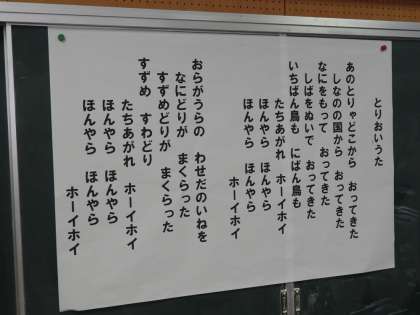 とりおいうた
あのとりゃどこから おってきた
しなのの国から おってきた
なにをもって おってきた
しばをぬいで おってきた
いちばん鳥も にばん鳥も
たちあがれ ホーイホイ
ほんやら ほんやら
ほんやら ホーイホイ
おらがうらの わせだのいねを
なにどりが まくらった
すずめどりが まくらった
すずめ すわどり
たちあがれ ホーイホイ
ほんやら ほんやら
ほんやら ほんやら
ホーイホイ